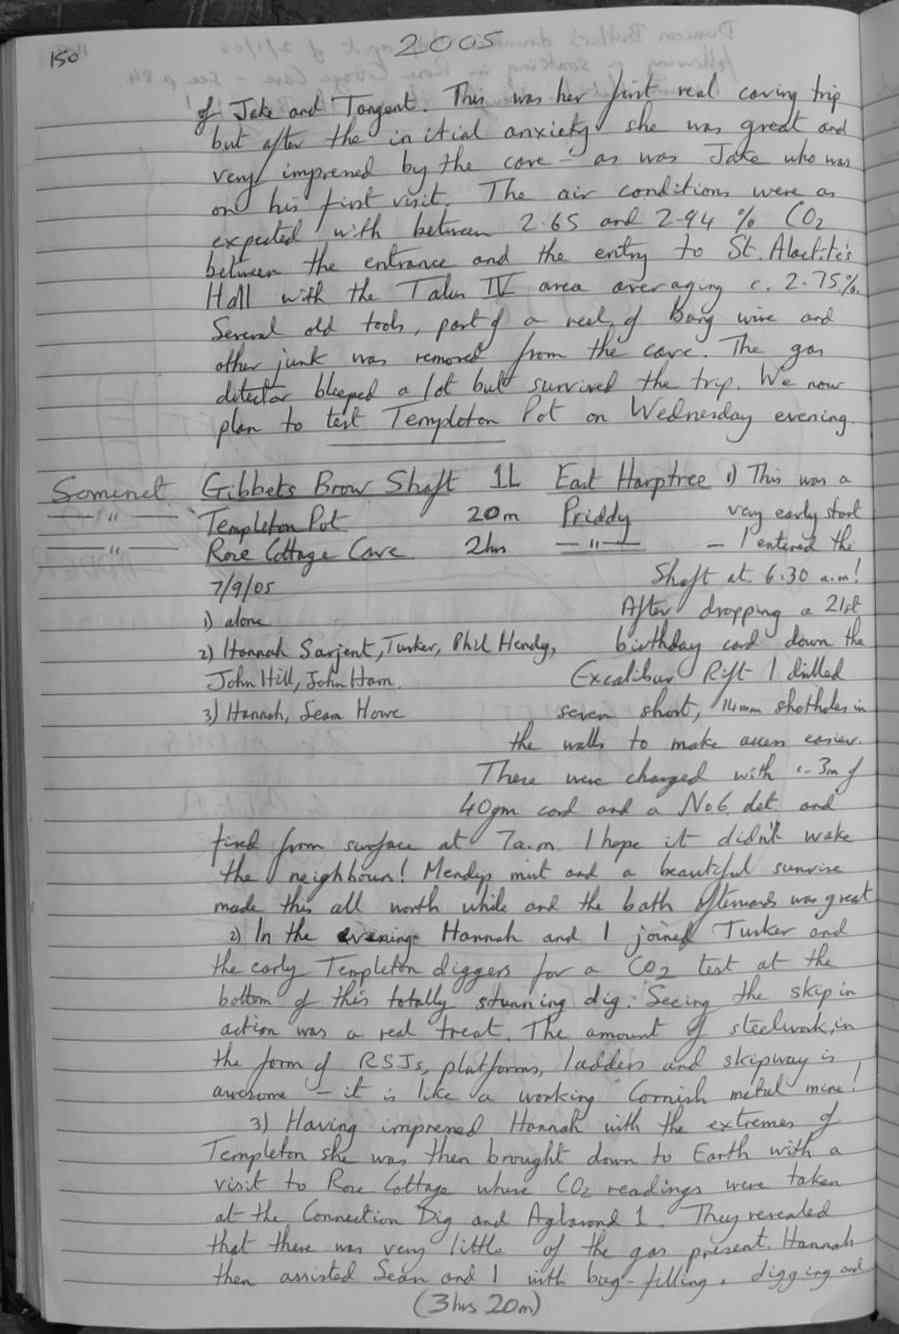 150
2005
of Jake and Tangent. This was her first real caving trip
but after the initial anxiety she was great and
very impressed by the cave - as was Jake who was
on his first visit. The air conditions were as
expected with between 2.65 and 2.94 % CO2
between the entrance and the entry to St. Alactite's
Hall with the Talus IV area averaging c. 2.75%.
Several old tools, part of a reel of bang wire and
other junk was removed from the cave. The gas
detector bleeped a lot but survived the trip. We now
plan to test Templeton Pot on Wednesday evening.
Somerset Gibbets Brow Shaft 1L East Harptree 1) This was a
— " — Templeton Pot 20m Priddy very early start
— " — Rose Cottage Cave 2hrs — " — - I entered the
7/9/05 Shaft at 6.30 a.m!
1) alone After dropping a 21st
2) Hannah Sarjent, Tusker, Phil Hendy, birthday card down the
John Hill, John Ham. Excalibur Rift I drilled
3) Hannah, Sean Howe seven short, 14mm shotholes in
the walls to make access easier.
These were charged with c. 3m of
40gm cord and a No6. det. and
fired from surface at 7a.m. I hope it didn't wake
the neighbours! Mendip mist and a beautiful sunrise
made this all worth while and the bath afterwards was great
2) In the evening Hannah and I joined Tusker and
the early Templeton diggers for a CO2 test at the
bottom of this totally stunning dig. Seeing the skip in
action was a real treat. The amount of steelwork, in
the form of RSJs, platforms, ladders and skipway is
awesome - it is like a working Cornish metal mine!
3) Having impressed Hannah with the extremes of
Templeton she was then brought down to Earth with a
visit to Rose Cottage where CO2 readings were taken
at the Connection Dig and Aglarond 1. They revealed
that there was very little of the gas present. Hannah
then assisted Seán and I with bag-filling, digging and
(3hrs 20m)